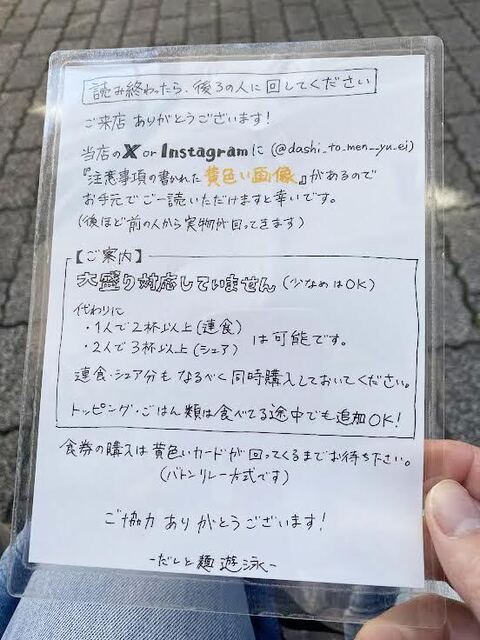 読み終わったら、後ろの人に回してください
ご来店ありがとうございます!
当店のX or Instagramに(@dashi_to_men__yu_ei)
『注意事項の書かれた黄色い画像』があるので
お手元でご一読いただけますと幸いです。
(後ほど前の人から実物が回ってきます)
【ご案内】
大盛り対応していません(少なめはOK)
代わりに
・1人で2杯以上(連食)
・2人で3杯以上(シェア)
は可能です。
連食・シェア分もなるべく同時購入しておいてください。
トッピング・ごはん類は食べてる途中でも追加OK!
食券の購入は黄色いカードが回ってくるまでお待ち下さい。
(バトンリレー方式です)
ご協力ありがとうございます!
-だしと麺 遊泳-